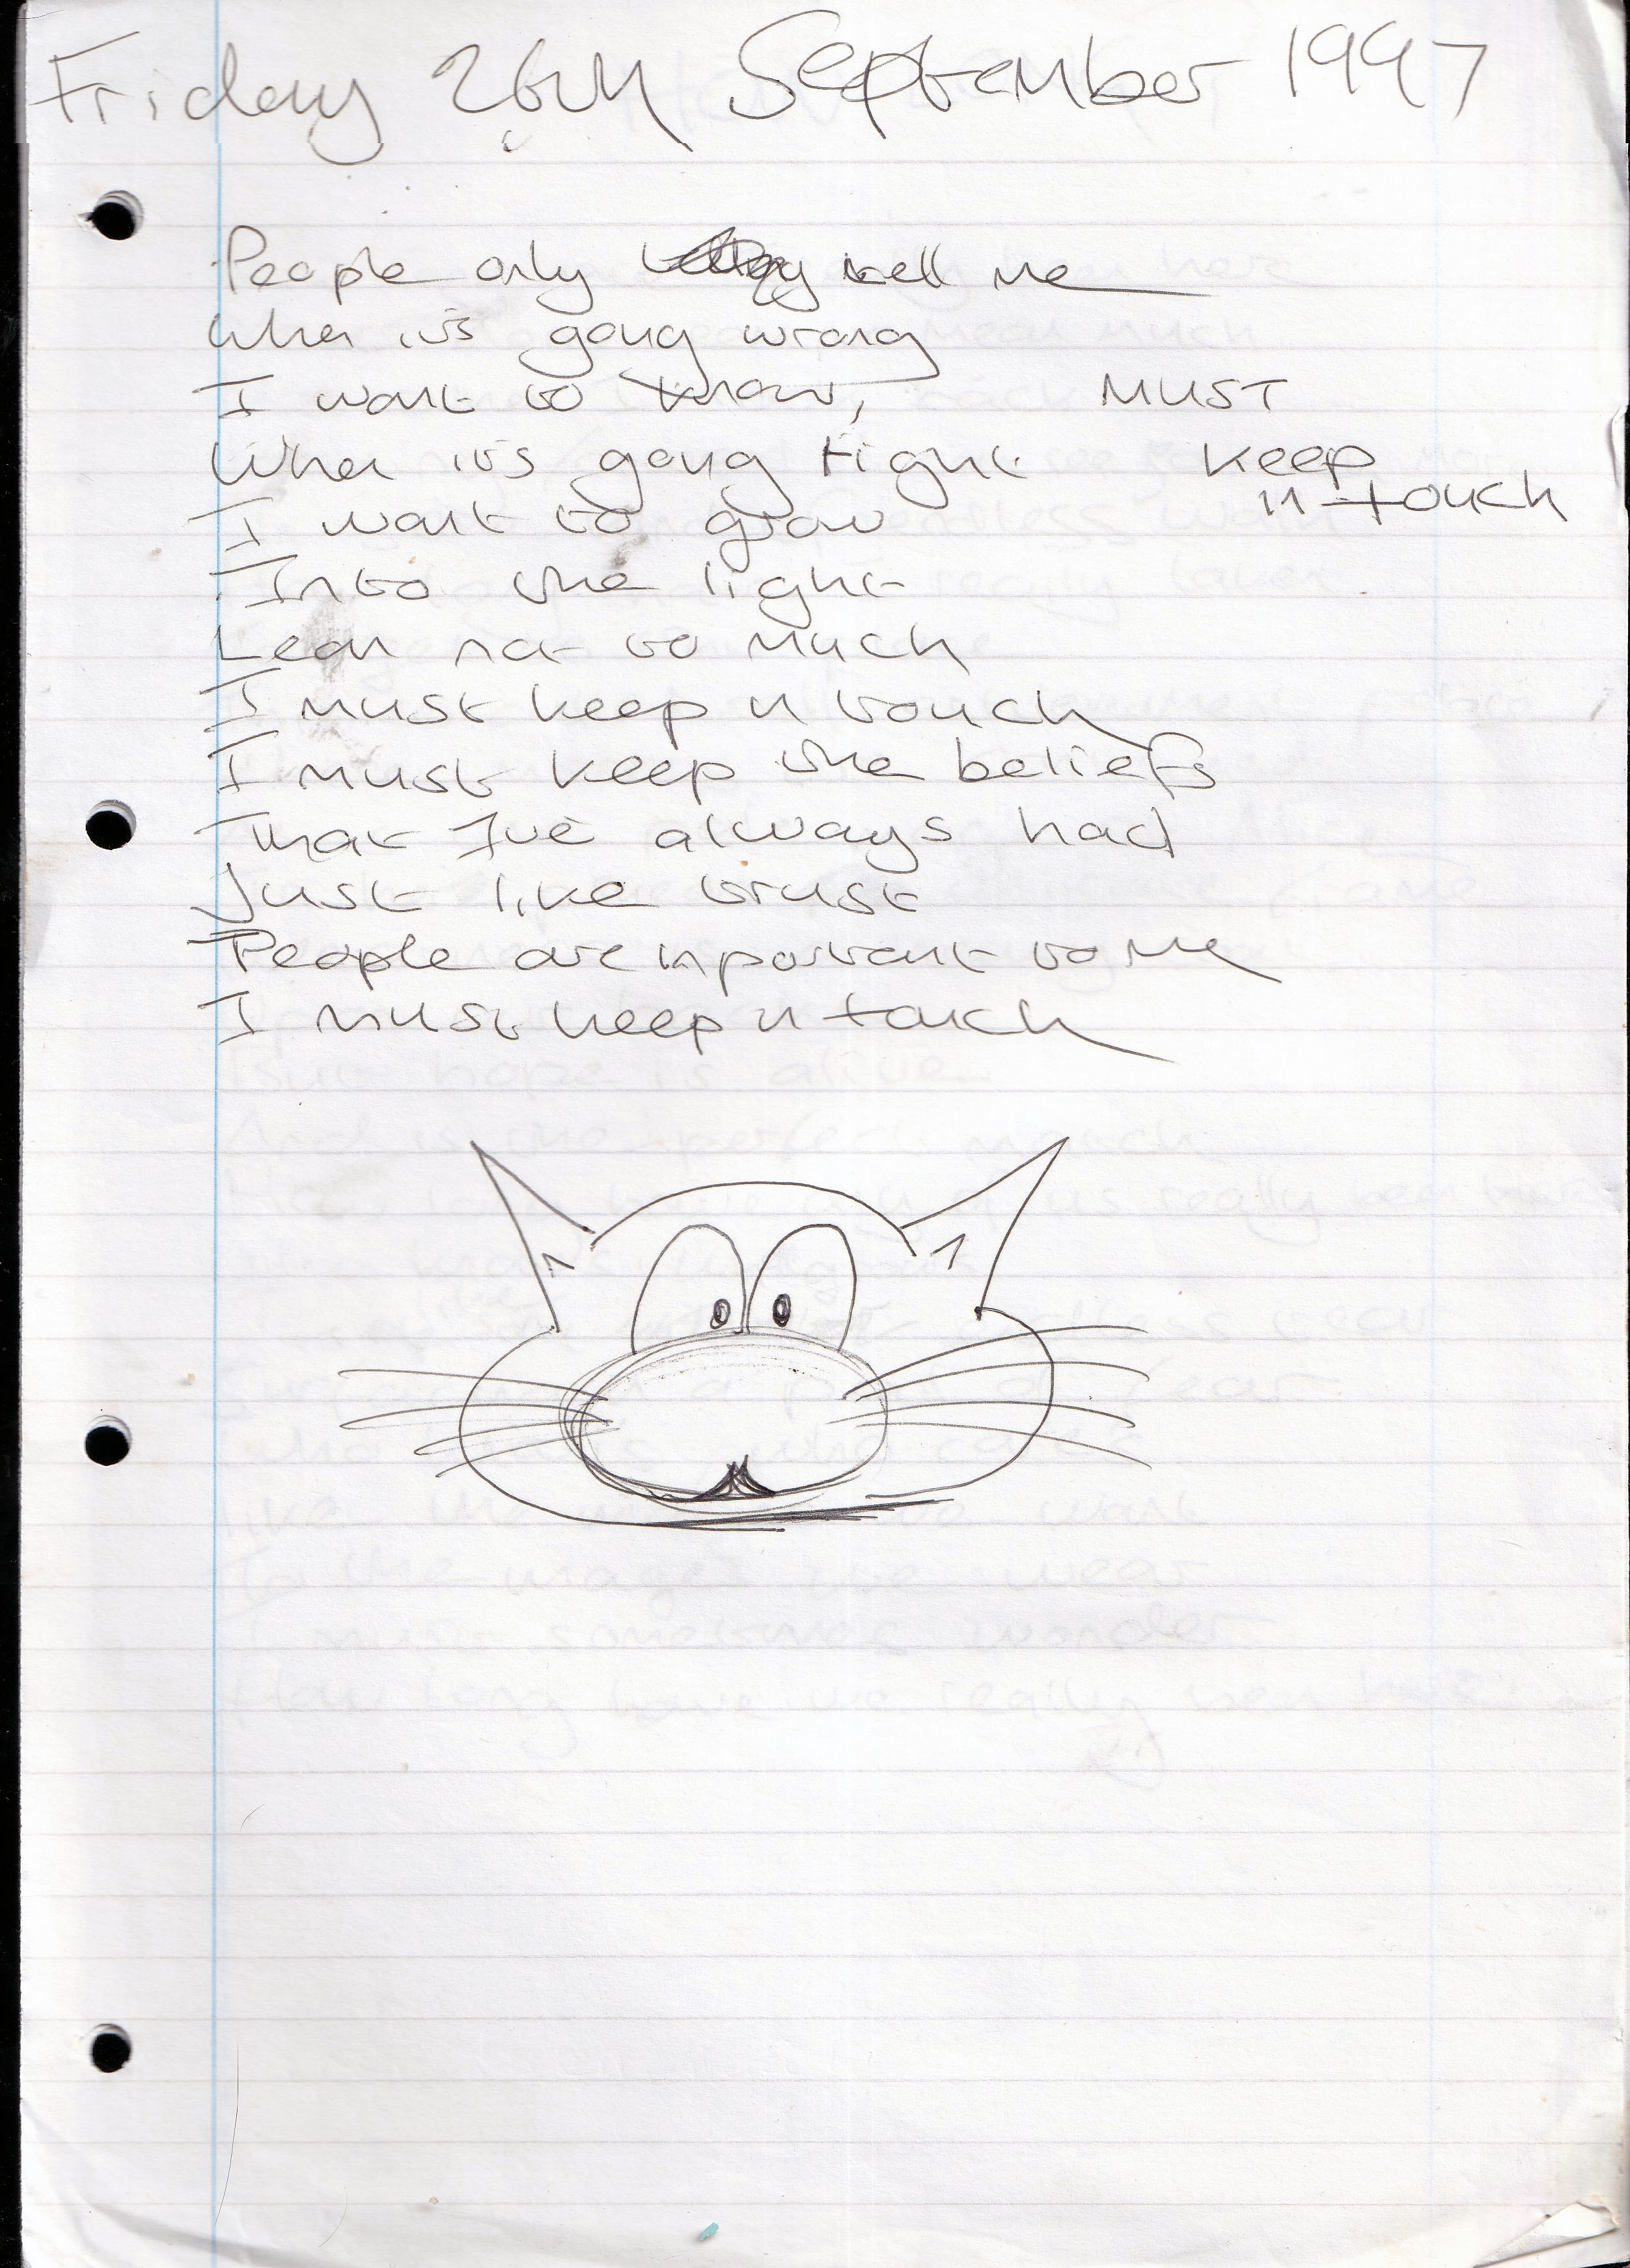 Friday 26th September 1997
People only tell me
When it's going wrong
I want to know,
When it's going right
I want to grow
Into the light
Lean not to much
I must keep in touch
I must keep the beliefs
That I've always had
Just like trust
People are important to me
I must keep in touch
MUST
Keep
in touch